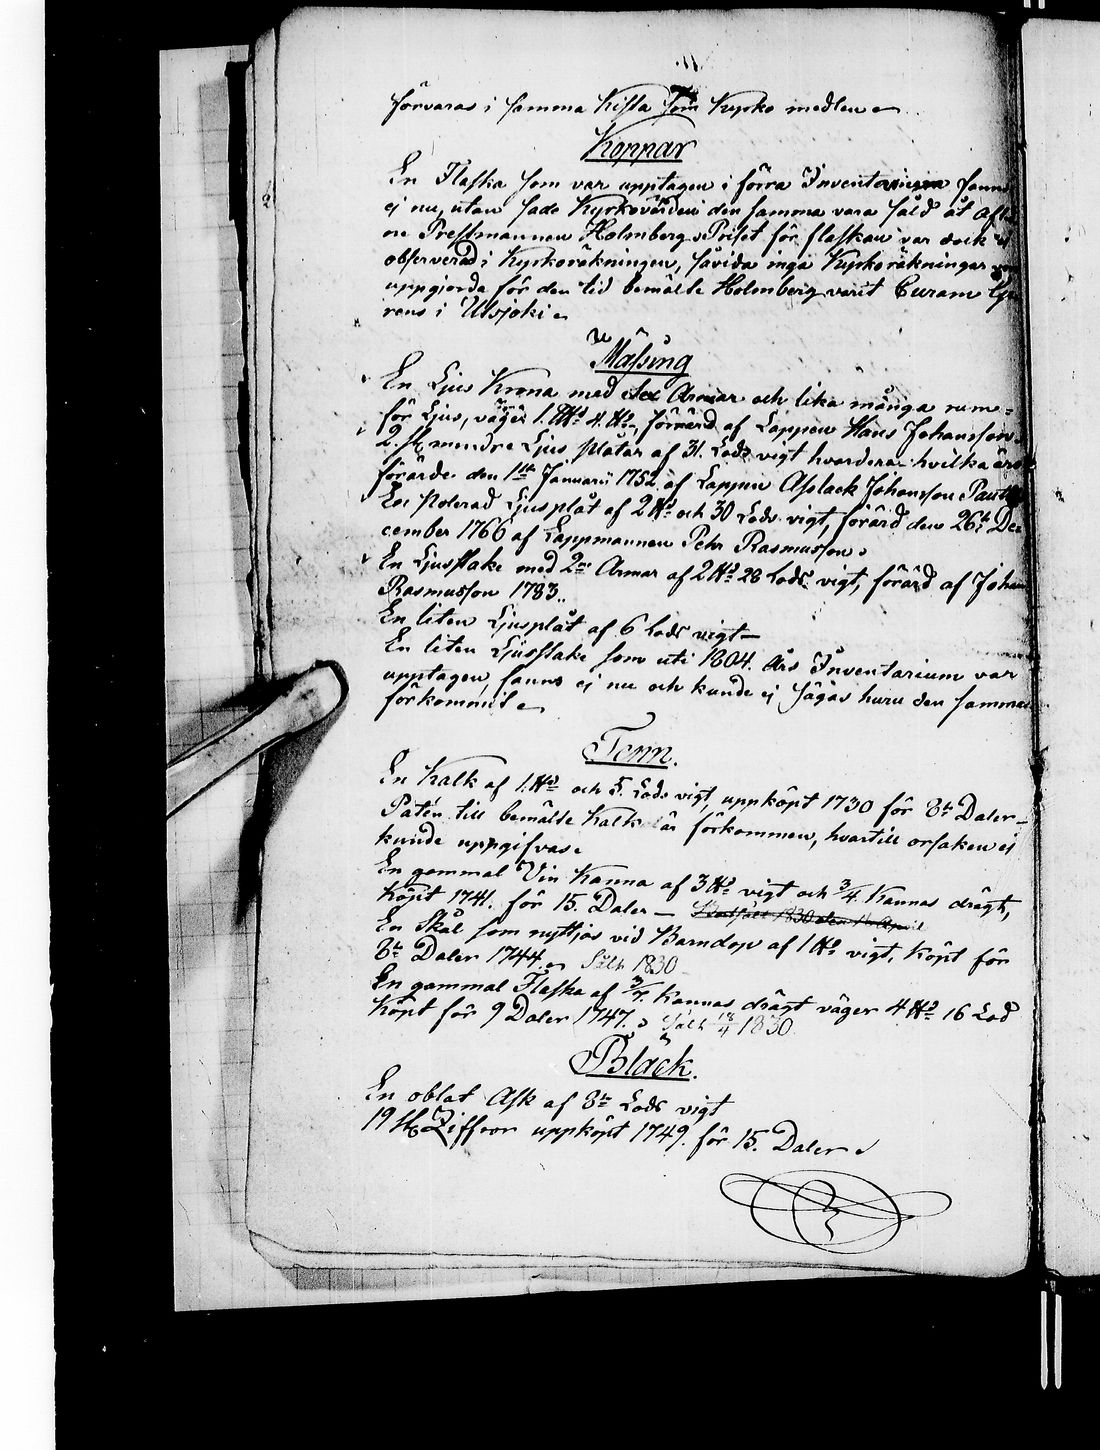 förvaras i samma Kista som Kyrko medlen
Koppar
En Flaska som var upptagen i förra Inventarium fanns
ej nu, utan sade Kyrkovärden den samma vara såld åt
Prestmannen Holmberg. Priset för flaskan var dock ej
observerad i Kyrkoräkningen, såvida inga Kyrkoräkningar
uppgjorda för den tid bemälte Holmberg varit Curam
rens i Utsjoki
Mässing
En Ljus Krona med Sex Armar och lika många rum
för Ljus, väger 1. L℔ 4. ℔, förärd af Lappen Hans Johansson
2. st. mindre Ljus plåtar af 31. Lods vigt hvardera hvilka äro
förärde den 1ste Januarii 1752 af Lappen Asslack Johansson
En Polerad Ljusplåt af 2 ℔ och 30 Lods vigt, förärd den 26te De-
cember 1766 af Lappmannen Pehr Rasmusson
En Ljusstake med 2ne Armar af 2 ℔ 28 Lods vigt, förärd af Johan
Rasmusson 1783.
En liten Ljusplåt af 6 Lods vigt
En liten Ljusstake som uti 1804. Års Inventarium var
upptagen, fanns ej nu och kunde ej sägas huru den sammas
förkommit
Tenn.
En Kalk af 1. ℔ och 5. Lods vigt, uppköpt 1730 för 8ta Daler
Patén till bemälte Kalk är förkommen, hvartill orsaken ej
kunde uppgifvas
En gammal Vin Kanna af 3 ℔ vigt och 3/4. Kannas drägt,
köpt 1741. för 15. Daler — 1830 den April
En Skål som nyttjas vid Barndop af 1 ℔ vigt, köpt för
8ta Daler 1744. Sålt 1830
En gammal Flaska af 3/4. Kannas drägt väger 4 ℔ 16 Lod
köpt för 9 Daler 1747. Sålt 18/4 1830
Bläck.
En oblat Ask af 8ta Lods vigt
19 st. Ziffror uppköpt 1749. för 15. Daler